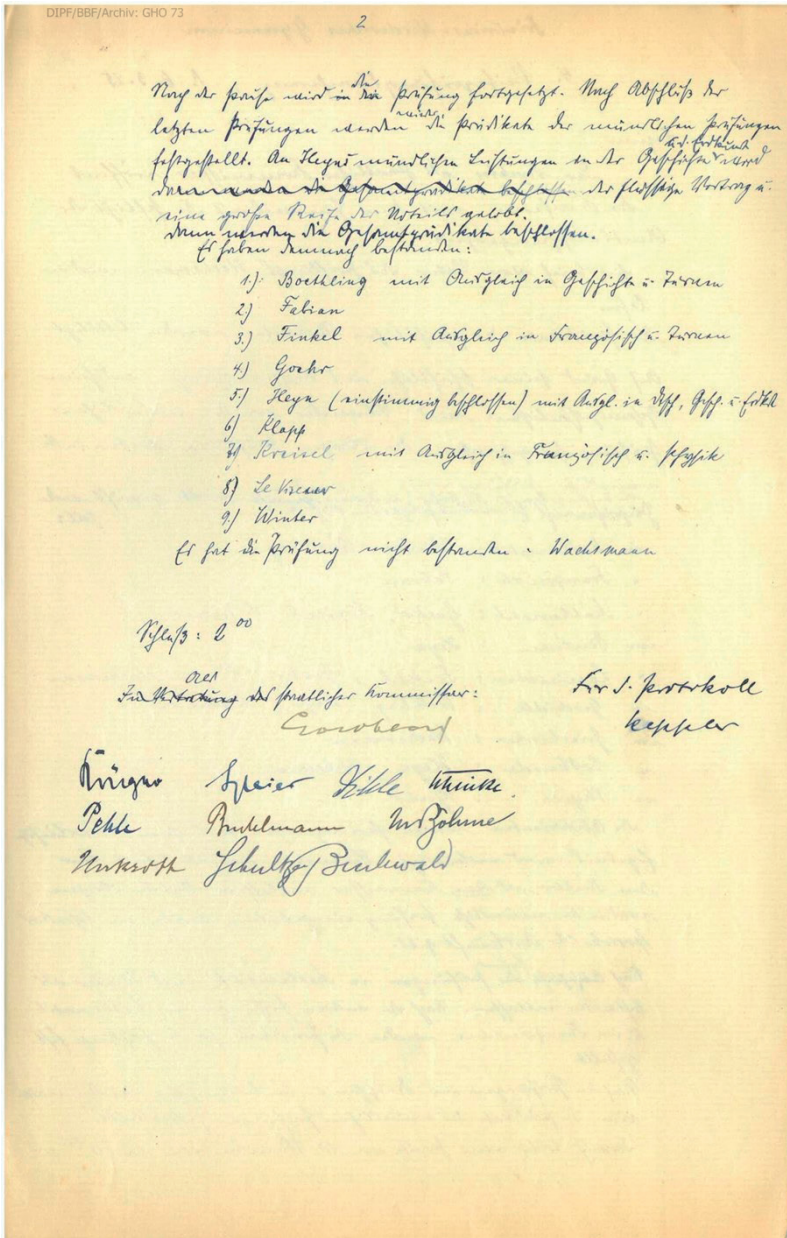 DIPF/BBF/Archiv: GHO 73
2
Nach der Pause wird in die die Prüfung fortgesetzt. Nach Abschluß der
letzten Prüfungen werden die Prädikate der mündlichen Prüfungen
festgestellt. An Heyns mündlichen Leistungen in der Geschichte u. d. Erdkunde wird
dann werden die Gesamtprädikate beschlossen der flüssige Vortrag u.
eine große Reife des Urteils gelobt.
Dann werden die Gesamtprädikate beschlossen.
Es haben demnach bestanden:
1.) Boethling mit Ausgleich in Geschichte u. Turnen
2) Fabian
3.) Finkel mit Ausgleich in Französisch u. Turnen
4.) Goehr
5.) Heyn (einstimmig beschlossen) mit Ausgl. in Dtsch, Gesch. u. Erdkd
6) Klapp
7) Kreisel mit Ausgleich in Französisch u. Physik
8)
9.) Winter
Es hat die Prüfung nicht bestanden: Wachsmann
Schluß: 2 00
In Vertretung des Als staatlicher Kommissar:
Für d. Protokoll
Keppler
Krüger Speier
Pehle Budelmann Böhme
Unkrodt Schultze Buchwald